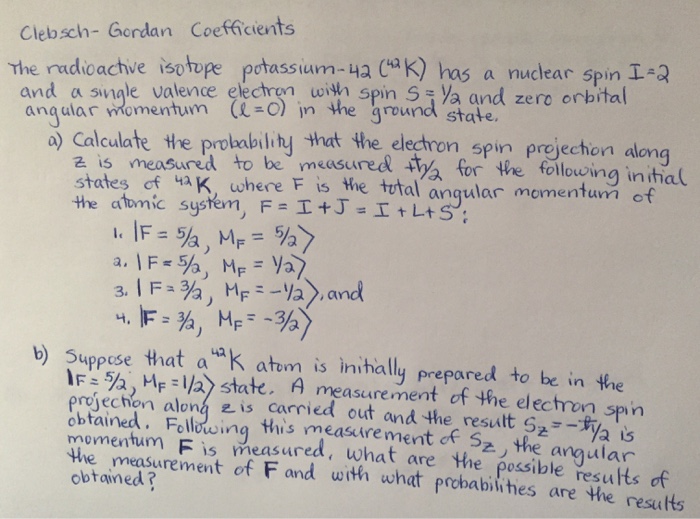 Clebsch-Gordan Coefficients
The radioactive isotope potassium-42 (⁴²K) has a nuclear spin I=2
and a single valence electron with spin S=1/2 and zero orbital
angular momentum (ℓ=0) in the ground state.
a) Calculate the probability that the electron spin projection along
z is measured to be measured +ħ/2 for the following initial
states of ⁴²K, where F is the total angular momentum of
the atomic system, F = I+J = I+L+S:
1. |F = 5/2, M_F = 5/2⟩
2. |F = 5/2, M_F = 1/2⟩
3. |F = 3/2, M_F = -1/2⟩, and
4. |F = 3/2, M_F = -3/2⟩
b) Suppose that a ⁴²K atom is initially prepared to be in the
|F = 5/2, M_F = 1/2⟩ state. A measurement of the electron spin
projection along z is carried out and the result S_z = -ħ/2 is
obtained. Following this measurement of S_z, the angular
momentum F is measured. What are the possible results of
the measurement of F and with what probabilities are the results
obtained?